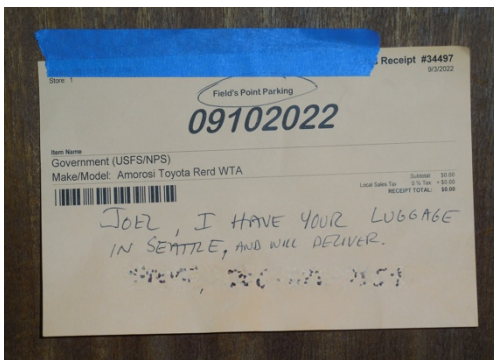 Receipt #34497
9/3/2022
Store: 1
Field's Point Parking
09102022
Item Name
Government (USFS/NPS)
Make/Model: Amorosi Toyota Rerd WTA
Subtotal $0.00
Local Sales Tax 0 % Tax + $0.00
RECEIPT TOTAL: $0.00
JOEL, I HAVE YOUR LUGGAGE
IN SEATTLE, AND WILL DELIVER.